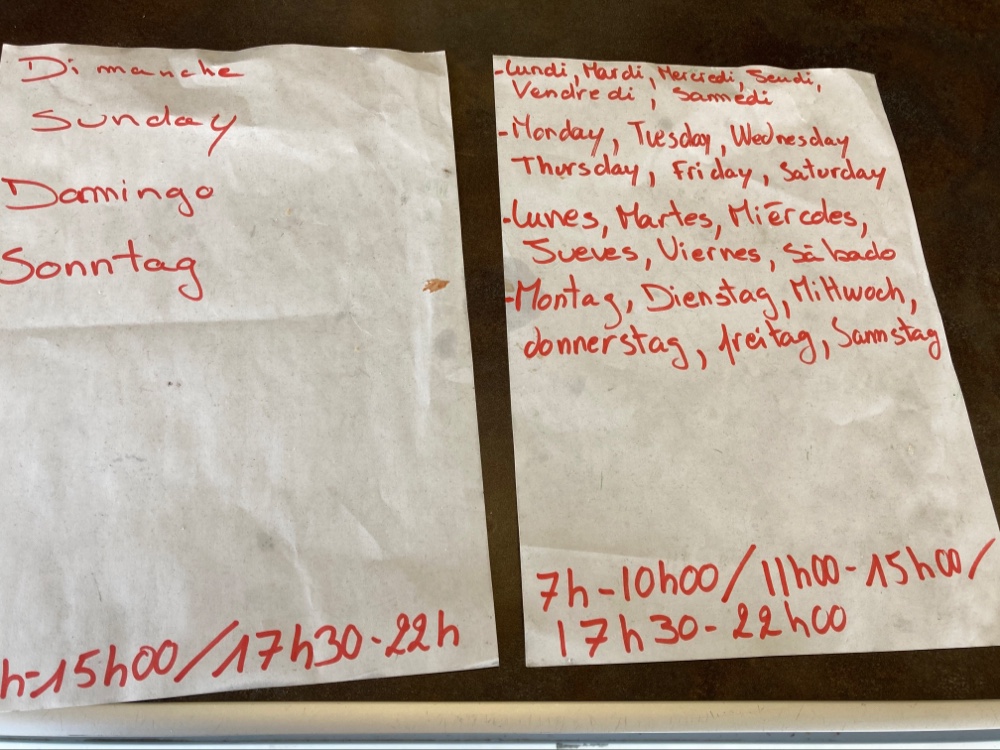 Dimanche
Sunday
Domingo
Sonntag
h-15h00/17h30-22h
-Lundi, Mardi, Mercredi, Jeudi,
Vendredi, Samedi
-Monday, Tuesday, Wednesday
Thursday, Friday, Saturday
-Lunes, Martes, Miércoles,
Jueves, Viernes, Sábado
-Montag, Dienstag, Mittwoch,
donnerstag, freitag, Samstag
7h-10h00/11h00-15h00/
17h30-22h00